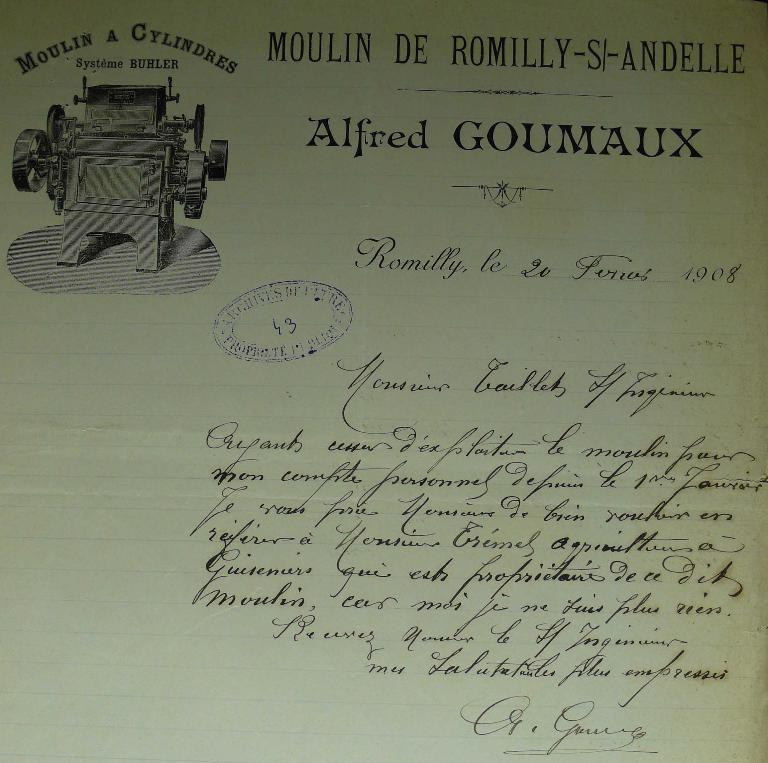 MOULIN A CYLINDRES
Système BUHLER
MOULIN DE ROMILLY-S/-ANDELLE
Alfred GOUMAUX
Romilly, le 20 1908
ARCHIVES DE L'EURE
43
PROPRIÉTÉ PUBLIQUE
Monsieur Taillet S/ Ingénieur
Ayants cesser d'exploiter le moulin pour
mon compte personnel depuis le 1er Janvier
Je vous prie Monsieur de bien vouloir en
référer à Monsieur Trémel agriculteur à
Guiseniers qui est propriétaire de ce dit
moulin, car moi je ne suis plus rien.
Recevez Monsieur le S/ Ingénieur
mes Salutations les plus empressés
A. Goumaux